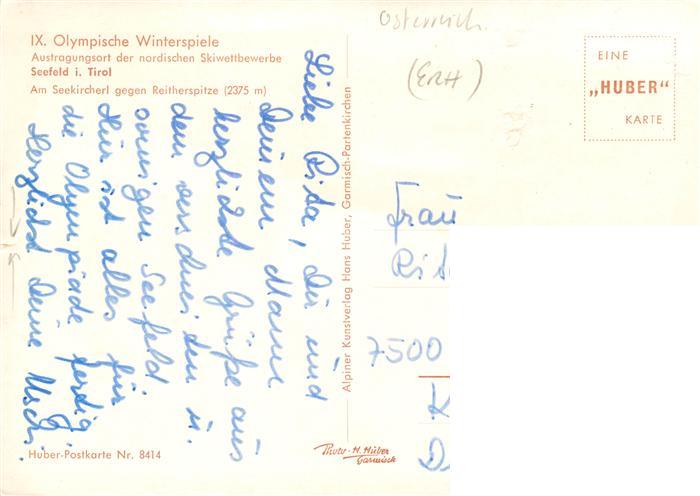 IX. Olympische Winterspiele
Austragungsort der nordischen Skiwettbewerbe
Seefeld i. Tirol
Am Seekircherl gegen Reitherspitze (2375 m)
Liebe Rita, Dir und
Deinem Mann
herzlichste Grüße aus
dem verschneiten u.
sonnigen Seefeld.
Hier ist alles für
die Olympiade fertig.
Herzlichst Deine
Huber-Postkarte Nr. 8414
Alpiner Kunstverlag Hans Huber, Garmisch-Partenkirchen
Photo-H. Huber
Garmisch
Österreich.
(ERH)
EINE
„HUBER"
KARTE
Frau
7500